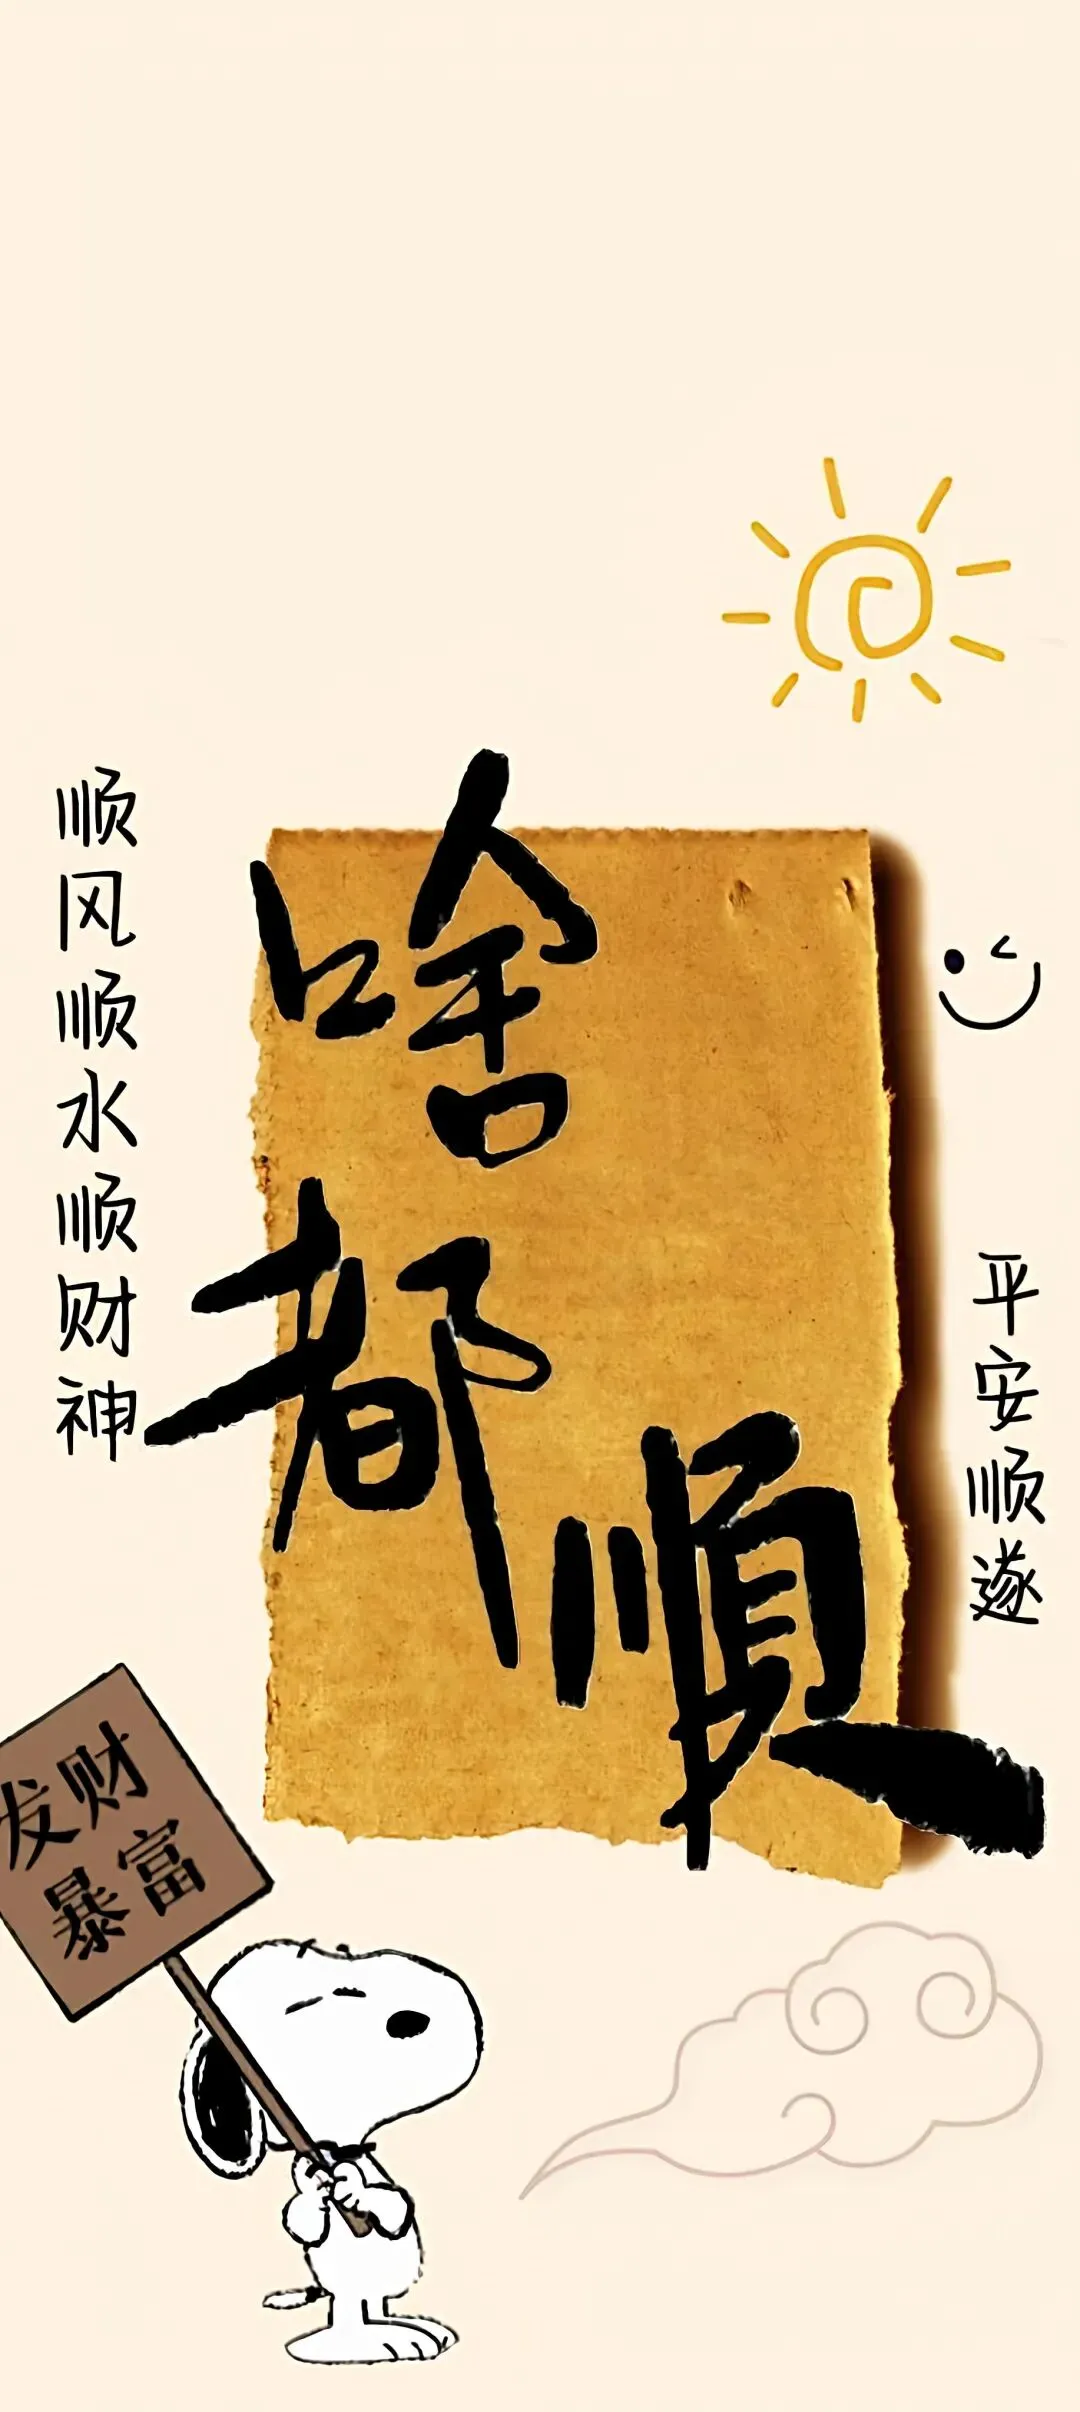 顺风顺水顺财神
啥都順
平安顺遂
发财
暴富